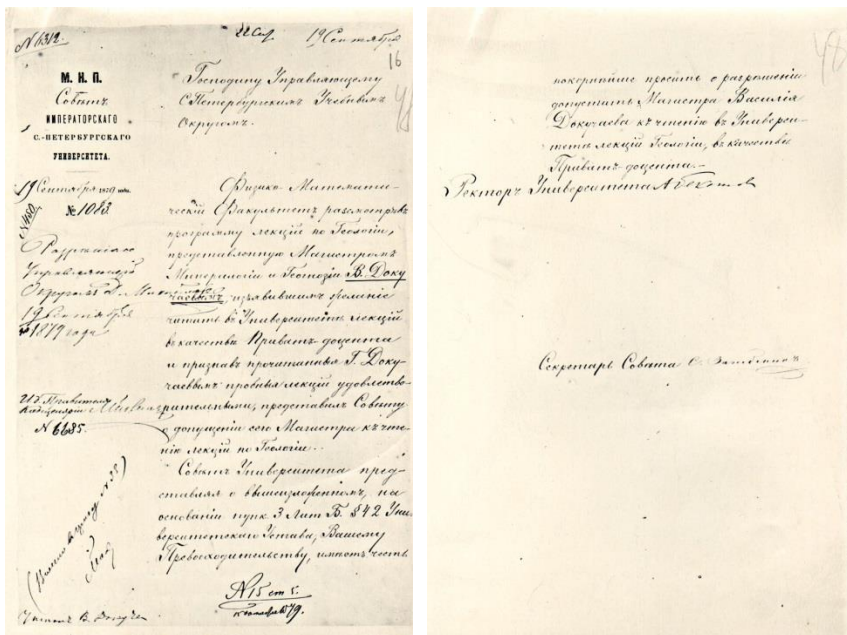 № 6312.
19 Сентября
16
М. Н. П.
Совѣтъ
ИМПЕРАТОРСКАГО
С.-ПЕТЕРБУРГСКАГО
УНИВЕРСИТЕТА.
19 Сентября 1879 года.
№ 1083
Господину Управляющему
С.Петербургскимъ Учебнымъ
Округомъ.
Физико-Математи-
ческій Факультетъ разсмотрѣвъ
программу лекцій по Геологіи,
представленную Магистромъ
Минералогіи и Геогнозіи В. Доку
чаевымъ, изъявившимъ желаніе
читать въ Университетѣ лекціи
въ качествѣ Приватъ-доцента
и признавъ прочитанныя Г. Доку-
чаевымъ пробныя лекціи удовлетво-
рительными, представилъ Совѣту
о допущеніи сего Магистра къ чте-
нію лекцій по Геологіи.
Совѣтъ Университета пред-
ставляя о вышеизложенномъ, на
основаніи пунк. 3 Лит. Б. § 42 Уни-
верситетскаго Устава, Вашему
Превосходительству, имѣетъ честь
Управляющій
Округомъ
19 Сентября
1879 года
№ 6685.
№ 15 ст.
48
покорнѣйше просить о разрѣшеніи
допустить Магистра Василія
Докучаева къ чтенію въ Универси-
тетѣ лекцій Геологіи, въ качествѣ
Приватъ-доцента.
Ректоръ Университета А Бекетовъ
Секретарь Совѣта